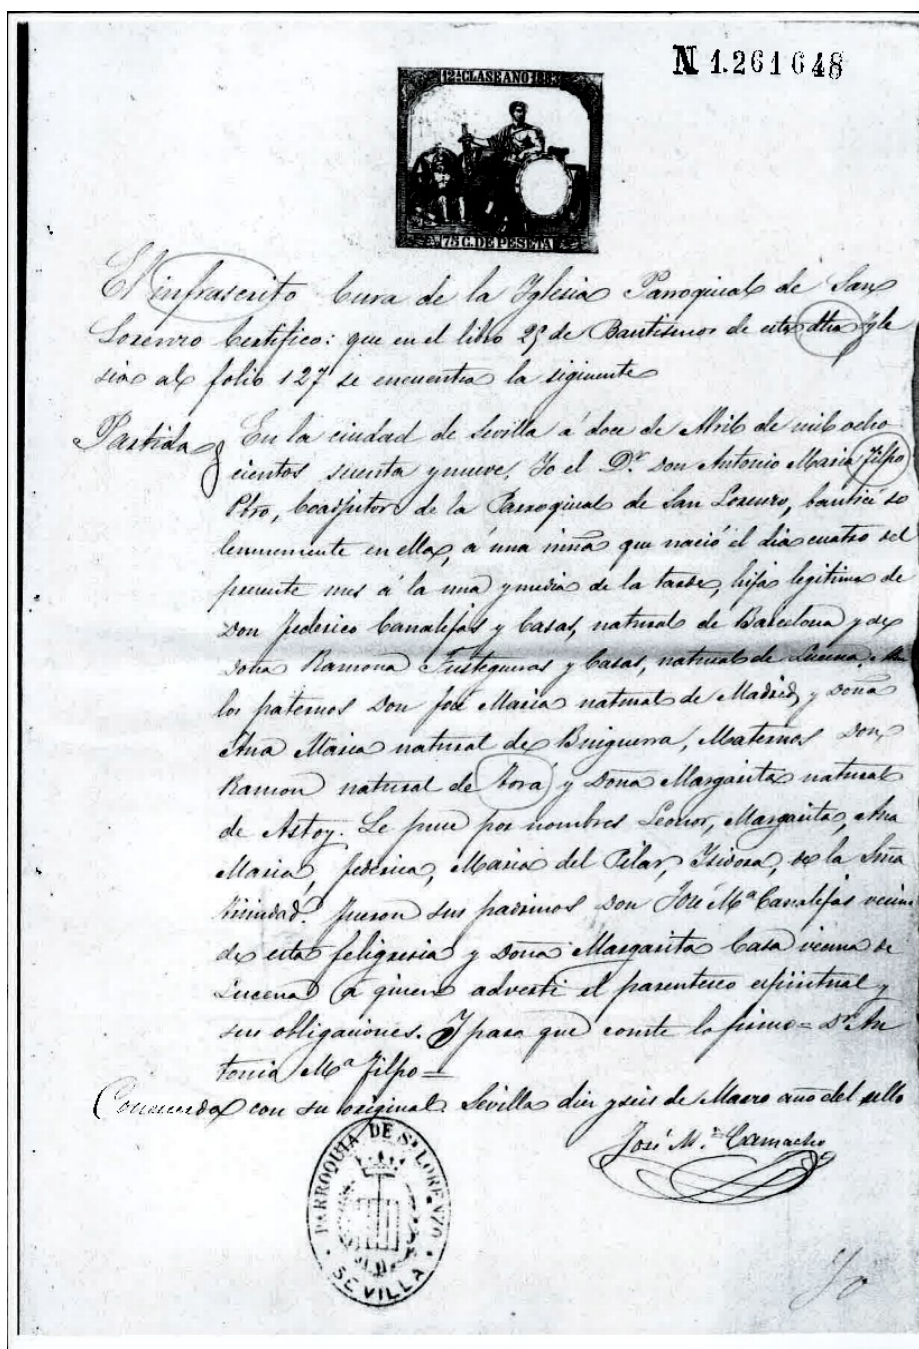 N 1.261648
12ª CLASE AÑO 1883
75 C. DE PESETA
El infrascrito Cura de la Yglesia Parroquial de San
Lorenzo Certifico: que en el libro 29 de Bautismos de esta dha Ygle
sia al folio 127 se encuentra la siguiente
Partida En la ciudad de Sevilla á doce de Abril de mil ocho
cientos sesenta y nueve, Yo el Dr. Don Antonio Maria Jilpo
Pbro, Coadjutor de la Parroquial de San Lorenzo, bauticé so
lemnemente en ella, á una niña que nació el dia cuatro del
presente mes á la una y media de la tarde, hija legitima de
Don Federico Canalejas y Casas, natural de Barcelona y de
Doña Ramona Fustegueras y Casas, natural de Lucena,
los paternos Don José Maria natural de Madrid, y Doña
Ana Maria natural de Buiguerra, Maternos Don
Ramon natural de Torá y Doña Margarita natural
de Astoy. Le puse por nombres Leonor, Margarita, Ana
Maria, Federica, Maria del Pilar, Isidora, de la Sma
Trinidad. Fueron sus padrinos Don José Mª Canalejas vecino
de esta feligresia y Doña Margarita Casa vecina de
Lucena á quienes advertí el parentesco espiritual y
sus obligaciones. Y para que conste lo firmo = Dr. An
tonio Mª Jilpo =
Concuerda con su original. Sevilla diez y seis de Marzo año del sello
José M.ª Camacho
PARROQUIA DE Sn LORENZO
SEVILLA